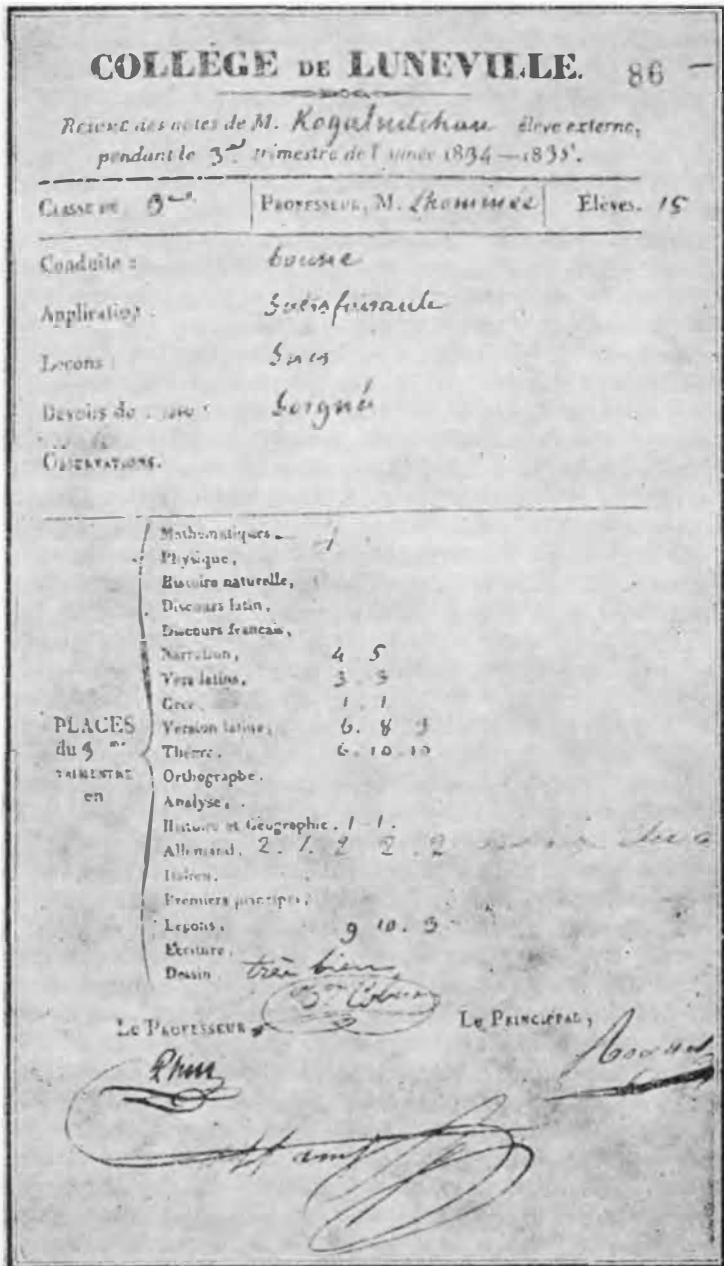 COLLÈGE DE LUNÉVILLE. 86
Relevé des notes de M. Kogalnitchan élève externe,
pendant le 3me trimestre de l'année 1834—1835.
CLASSE DE 3me PROFESSEUR, M. Lhommée Élèves. 15
Conduite : bonne
Application : Satisfaisante
Leçons : Sues
Devoirs de : Soignés
OBSERVATIONS.
Mathématiques.
Physique,
Histoire naturelle,
Discours latin,
Discours français,
Narration, 4 5
Vers latins, 3 . 3
Grec, 1 . 1
Version latine, 6. 8 9
Thème, 6. 10. 10
Orthographe.
Analyse,
Histoire et Géographie. 1 - 1.
Allemand, 2. 1. 2 2. 2
Italien.
Premiers principes,
Leçons, 9 10. 3
Écriture.
Dessin très bien
PLACES
du 3me
TRIMESTRE
en
LE PROFESSEUR, LE PRINCIPAL,